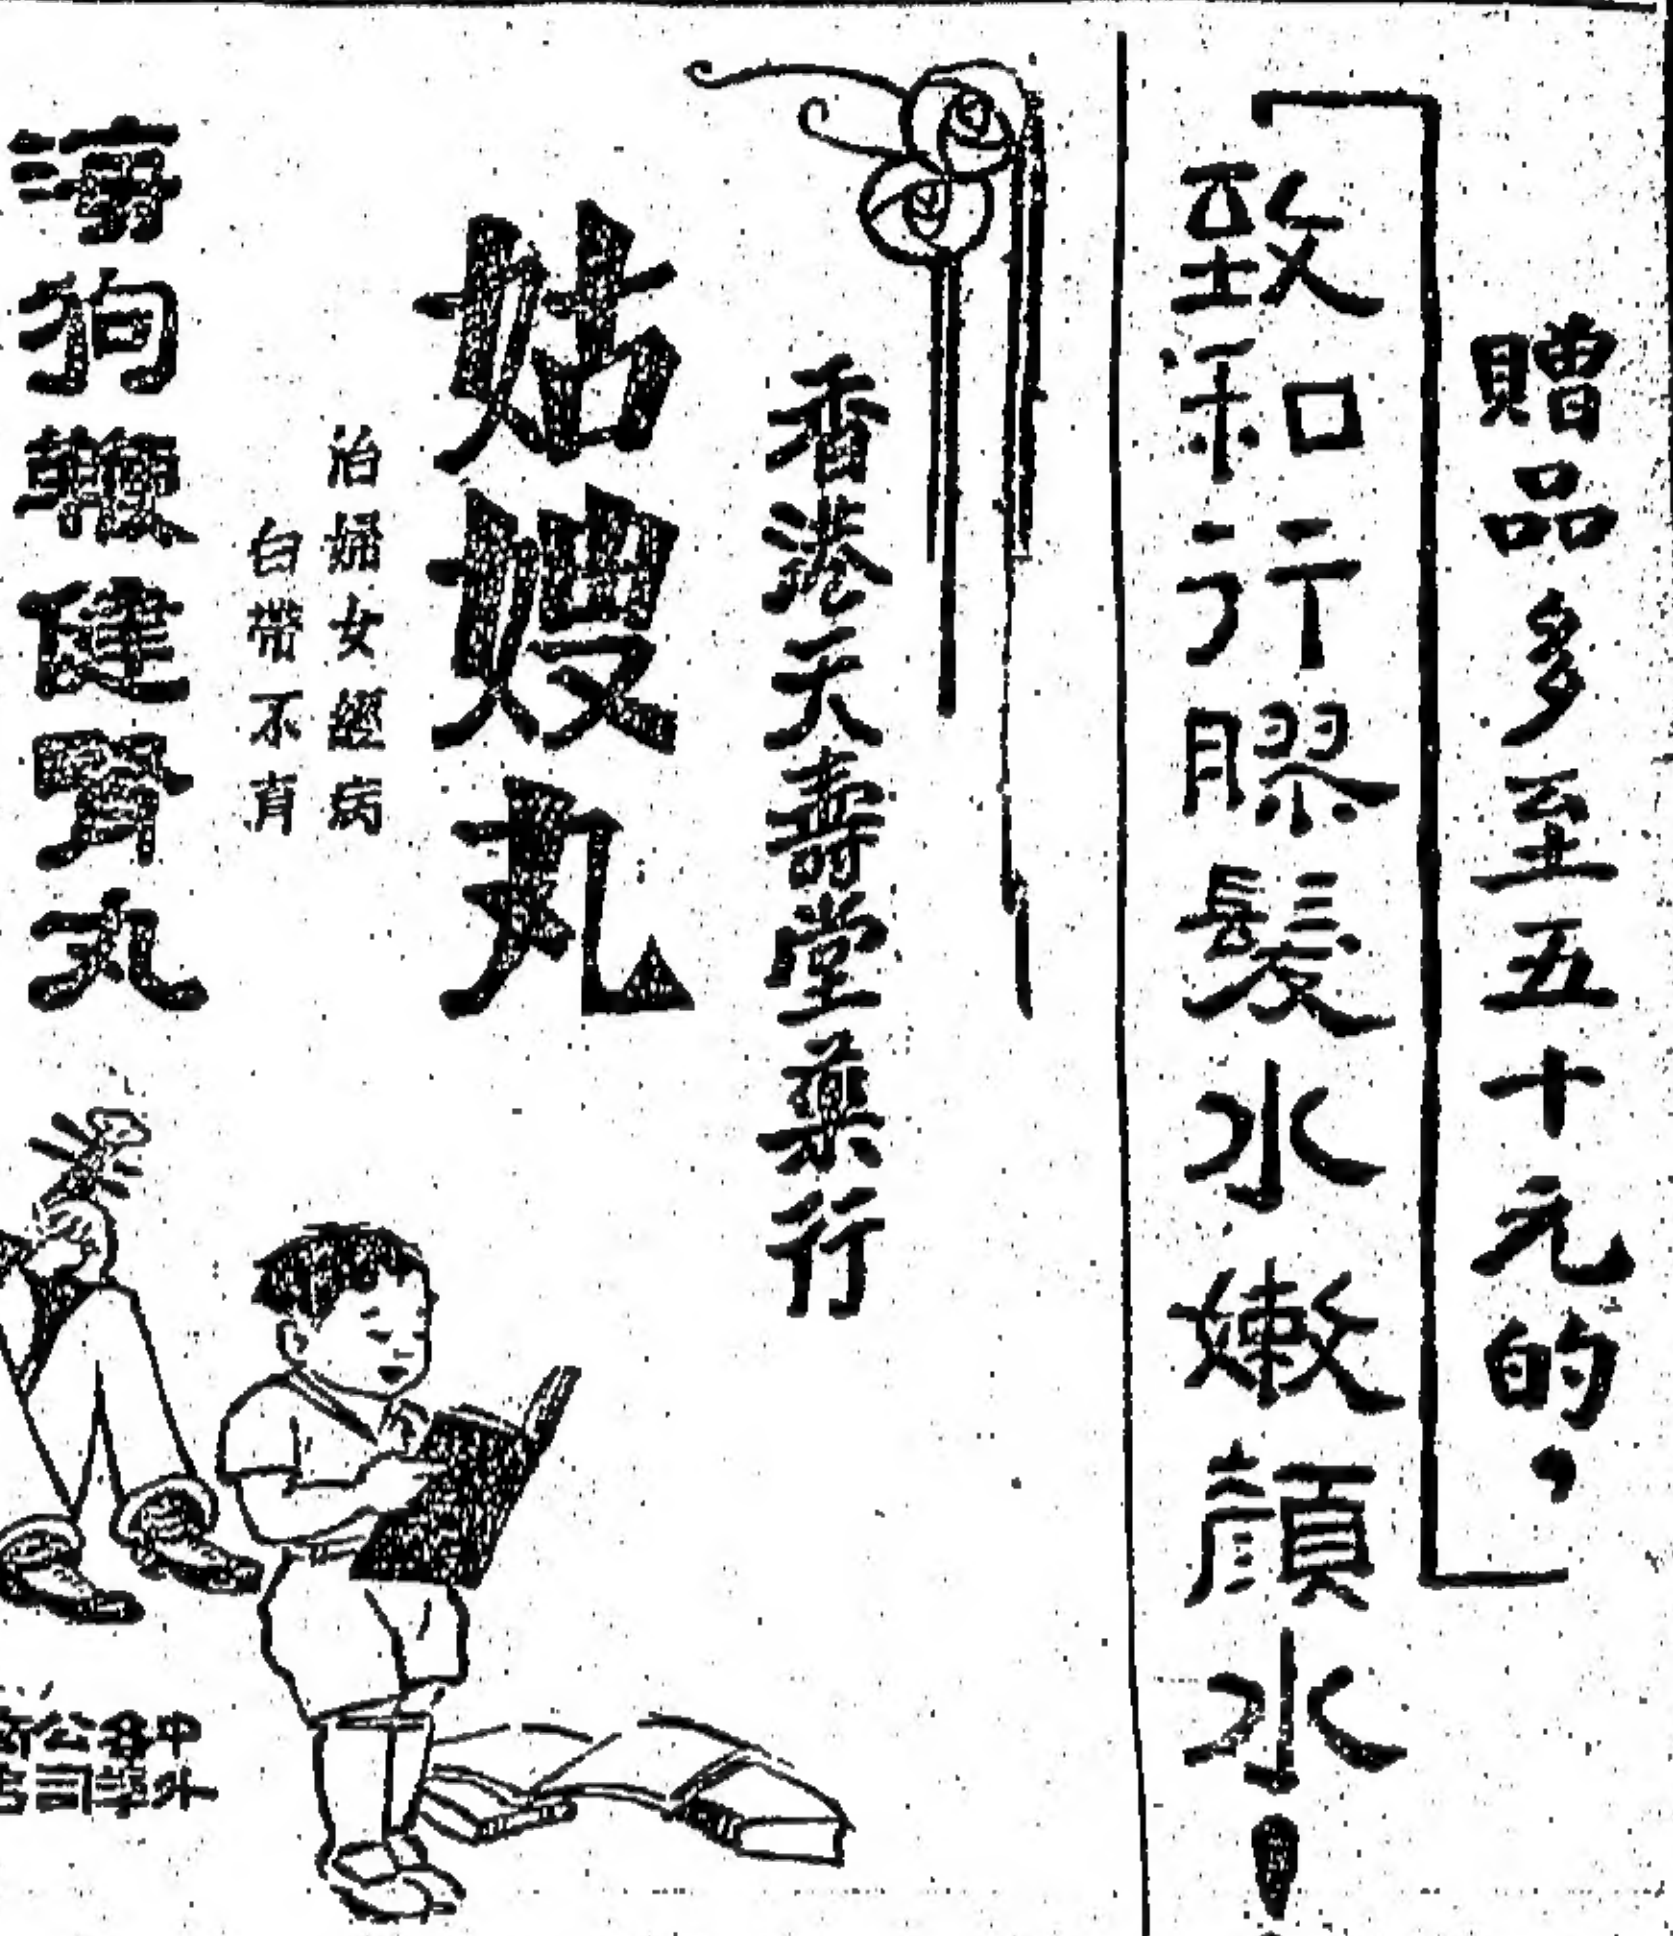 贈品多至五十元的，
致和行膠髮水嫩顏水！
香港天壽堂藥行
姑嫂丸
治婦女經病
白帶不育
海狗鞭健腎丸
中外
各埠
公司